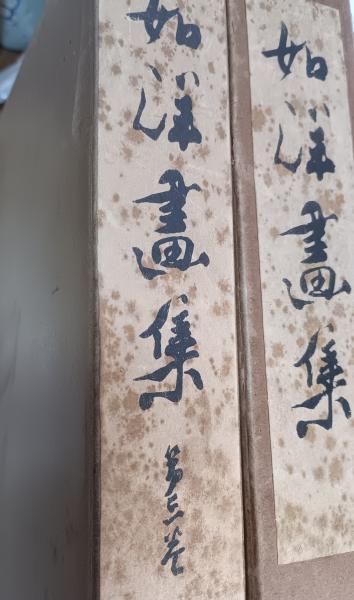 如洋畫集
第三卷
如洋畫集